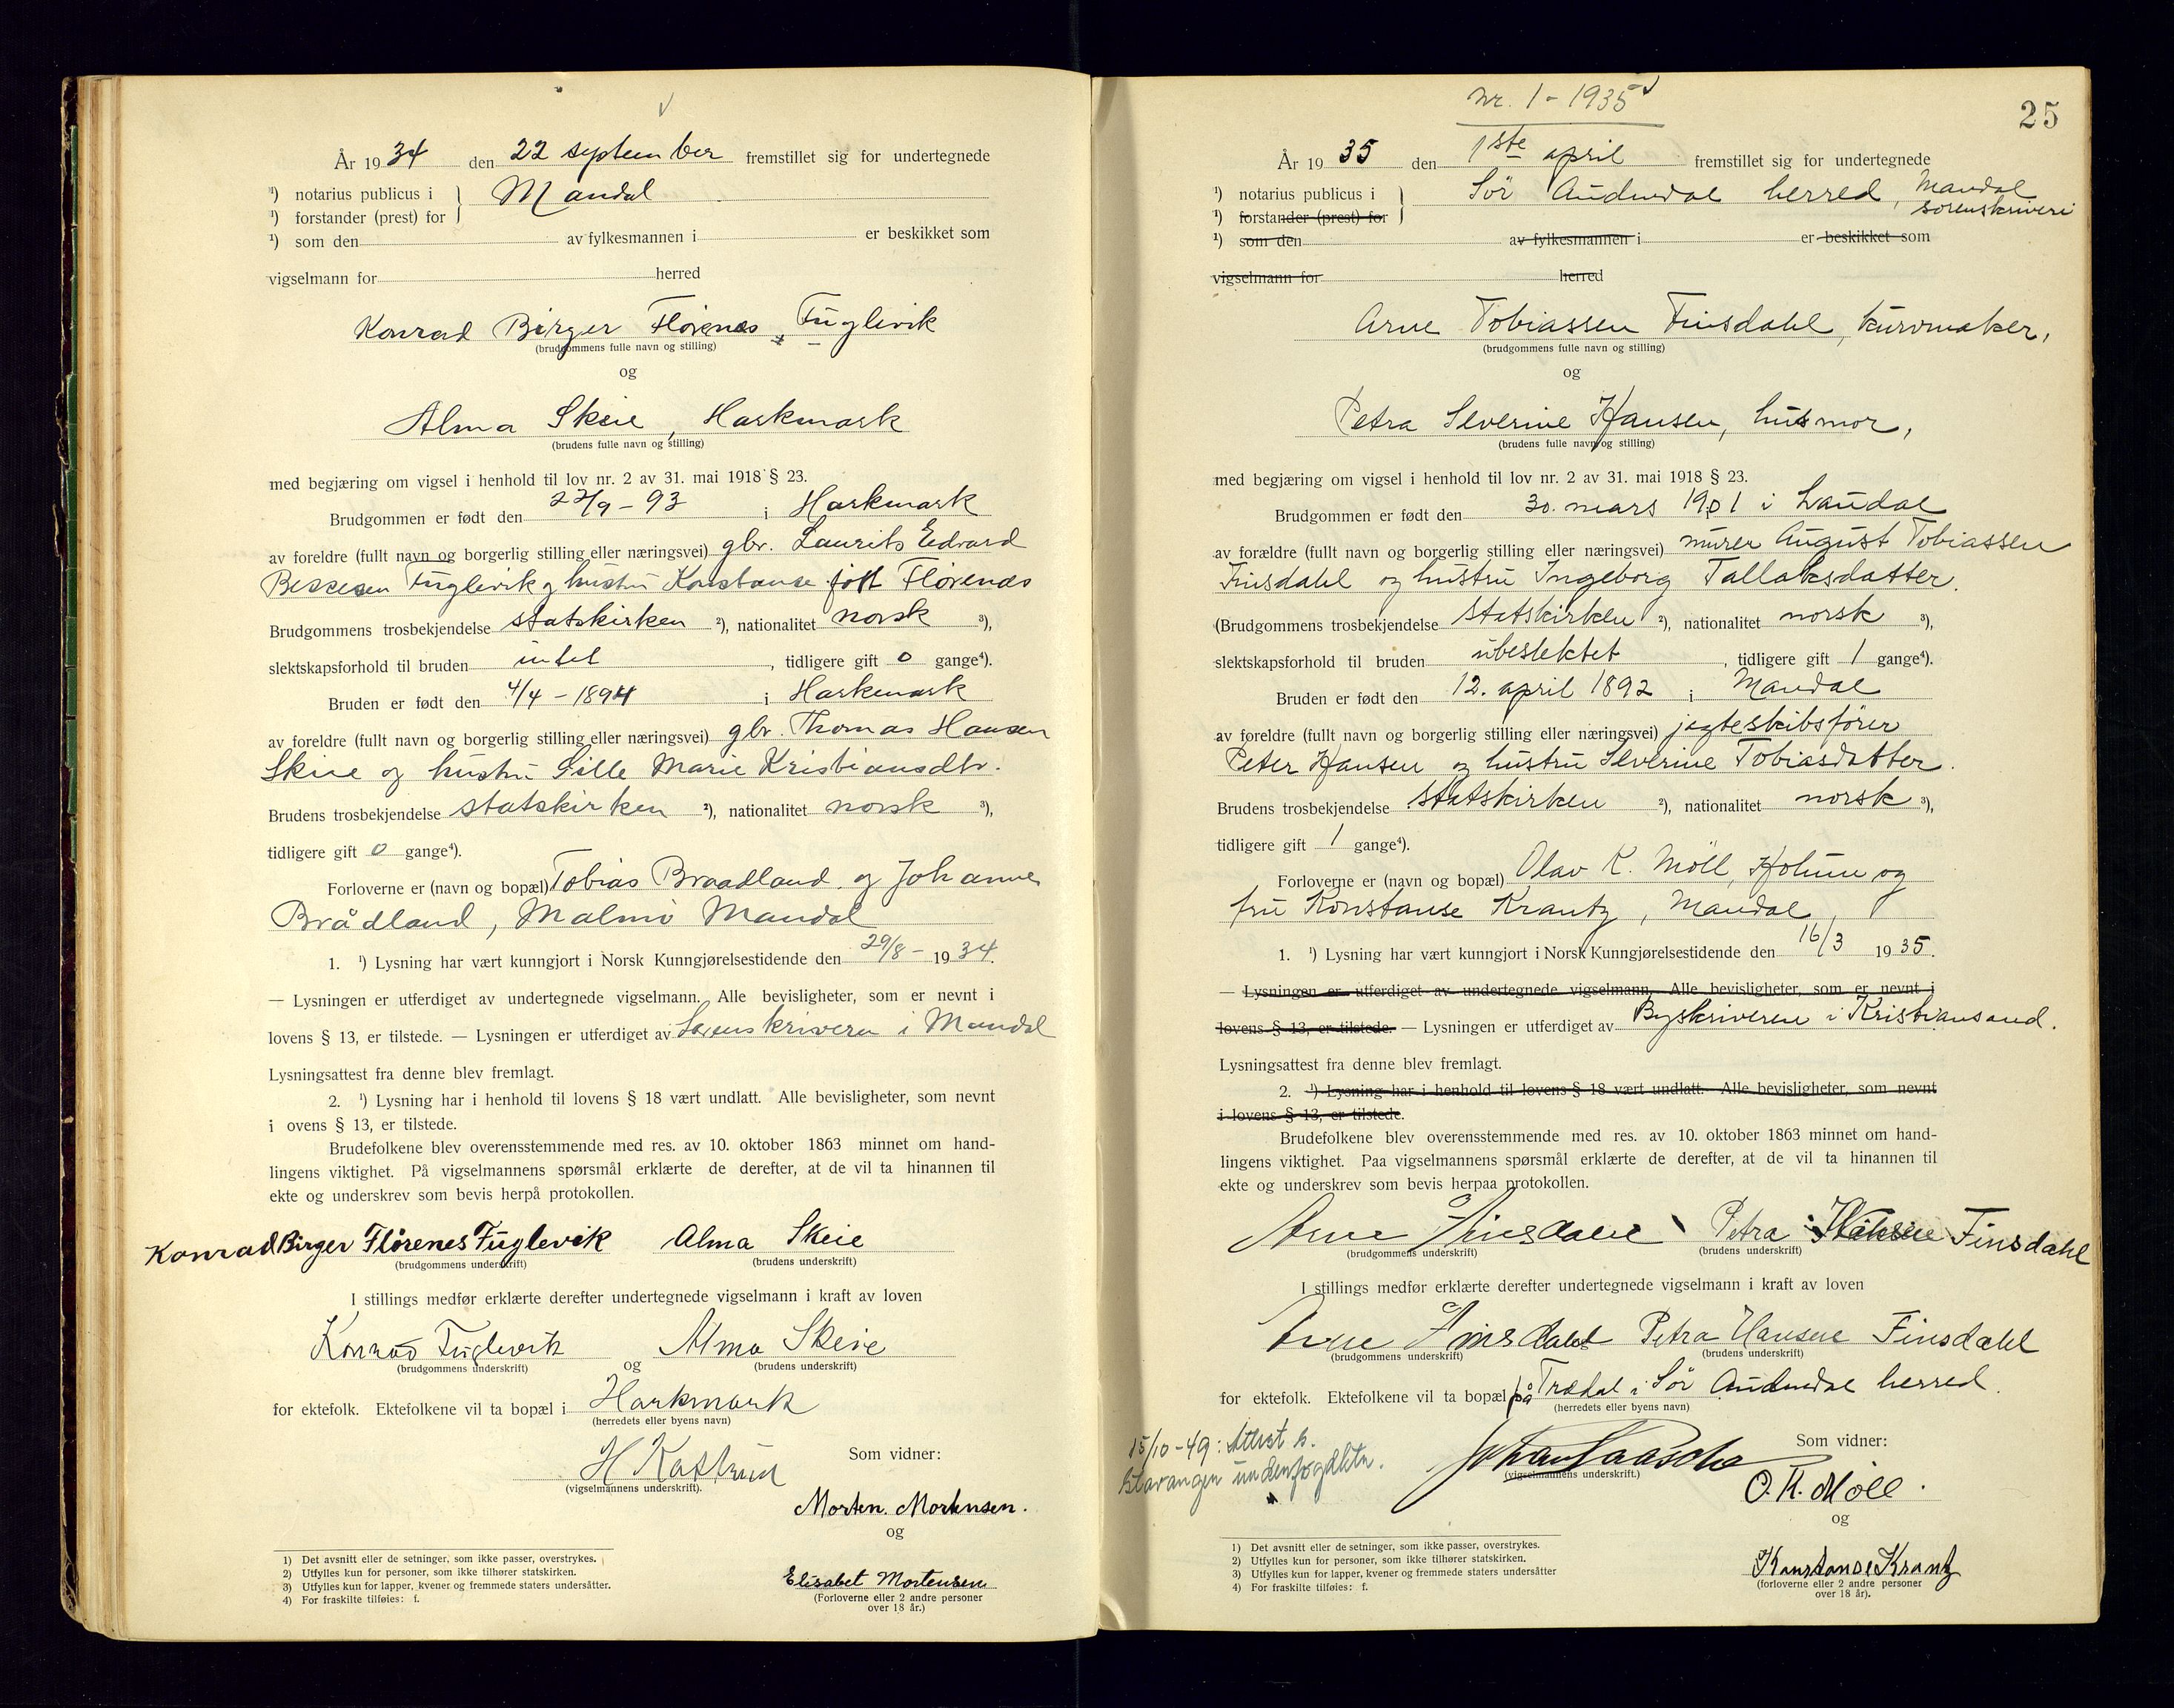 År 1934 den 22 september fremstillet sig for undertegnede
¹) notarius publicus i } Mandal
¹) forstander (prest) for
¹) som den av fylkesmannen i er beskikket som
vigselmann for herred
Konrad Birger Flörenes, Fuglevik
(brudgommens fulle navn og stilling)
og
Alma Skeie, Harkmark
(brudens fulle navn og stilling)
med begjæring om vigsel i henhold til lov nr. 2 av 31. mai 1918 § 23.
Brudgommen er født den 22/9 - 93 i Harkmark
av foreldre (fullt navn og borgerlig stilling eller næringsvei) gbr. Laurits Edvard
Fuglevik og hustru Konstanse født Flörenes
Brudgommens trosbekjendelse statskirken ²), nationalitet norsk ³),
slektskapsforhold til bruden intet, tidligere gift 0 gange⁴).
Bruden er født den 4/4 - 1894 i Harkmark
av foreldre (fullt navn og borgerlig stilling eller næringsvei) gbr. Thomas Hansen
Skeie og hustru Sille Marie Kristiansdtr.
Brudens trosbekjendelse statskirken ²), nationalitet norsk ³),
tidligere gift 0 gange⁴).
Forloverne er (navn og bopæl) Tobias Braadland og Johanne
Brådland, Malmö Mandal
1. ¹) Lysning har vært kunngjort i Norsk Kunngjørelsestidende den 29/8 - 1934.
— Lysningen er utferdiget av undertegnede vigselmann. Alle bevisligheter, som er nevnt i
lovens § 13, er tilstede. — Lysningen er utferdiget av Sorenskriveren i Mandal
Lysningsattest fra denne blev fremlagt.
2. ¹) Lysning har i henhold til lovens § 18 vært undlatt. Alle bevisligheter, som nevnt
i ovens § 13, er tilstede.
Brudefolkene blev overensstemmende med res. av 10. oktober 1863 minnet om hand-
lingens viktighet. På vigselmannens spørsmål erklærte de derefter, at de vil ta hinannen til
ekte og underskrev som bevis herpå protokollen.
Konrad Birger Flörenes Fuglevik Alma Skeie
(brudgommens underskrift) (brudens underskrift)
I stillings medfør erklærte derefter undertegnede vigselmann i kraft av loven
Konrad Fuglevik og Alma Skeie
(brudgommens underskrift) (brudens underskrift)
for ektefolk. Ektefolkene vil ta bopæl i Harkmark
(herredets eller byens navn)
H Kastrud
(vigselmannens underskrift).
Som vidner:
Morten. Mortensen.
og
Elisabet Mortensen
(Forloverne eller 2 andre personer
over 18 år.)
1) Det avsnitt eller de setninger, som ikke passer, overstrykes.
2) Utfylles kun for personer, som ikke tilhører statskirken.
3) Utfylles kun for lapper, kvener og fremmede staters undersåtter.
4) For fraskilte tilføies: f.
nr. 1 - 1935
25
År 1935 den 1ste april fremstillet sig for undertegnede
¹) notarius publicus i } Sör Audnedal herred, Mandal
sorenskriveri
¹) forstander (prest) for
¹) som den av fylkesmannen i er beskikket som
vigselmann for herred
Arne Tobiassen Finsdahl, kurvmaker,
(brudgommens fulle navn og stilling)
og
Petra Severine Hansen, husmor,
(brudens fulle navn og stilling)
med begjæring om vigsel i henhold til lov nr. 2 av 31. mai 1918 § 23.
Brudgommen er født den 30. mars 1901 i Laudal
av forældre (fullt navn og borgerlig stilling eller næringsvei) murer August Tobiassen
Finsdahl og hustru Ingeborg Tallaksdatter.
(Brudgommens trosbekjendelse statskirken ²), nationalitet norsk ³),
slektskapsforhold til bruden ubeslektet, tidligere gift 1 gange⁴).
Bruden er født den 12. april 1892 i Mandal
av foreldre (fullt navn og borgerlig stilling eller næringsvei) jagteskibsförer
Peter Hansen og hustru Severine Tobiasdatter.
Brudens trosbekjendelse statskirken ²), nationalitet norsk ³),
tidligere gift 1 gange⁴).
Forloverne er (navn og bopæl) Olav K. Möll, Holum og
fru Konstanse Krantz, Mandal,
1. ¹) Lysning har vært kunngjort i Norsk Kunngjørelsestidende den 16/3 1935.
— Lysningen er utferdiget av undertegnede vigselmann. Alle bevisligheter, som er nevnt i
lovens § 13, er tilstede. — Lysningen er utferdiget av Byskriveren i Kristiansand.
Lysningsattest fra denne blev fremlagt.
2. ¹) Lysning har i henhold til lovens § 18 vært undlatt. Alle bevisligheter, som nevnt
i lovens § 13, er tilstede.
Brudefolkene blev overensstemmende med res. av 10. oktober 1863 minnet om hand-
lingens viktighet. Paa vigselmannens spørsmål erklærte de derefter, at de vil ta hinannen til
ekte og underskrev som bevis herpaa protokollen.
Arne Finsdahl Petra Hansen Finsdahl
(brudgommens underskrift) (brudens underskrift)
I stillings medfør erklærte derefter undertegnede vigselmann i kraft av loven
Arne Finsdahl Petra Hansen Finsdahl
(brudgommens underskrift) (brudens underskrift)
for ektefolk. Ektefolkene vil ta bopæl på Trædal i Sör Audnedal herred.
(herredets eller byens navn)
15/10-49: Attest s.
Stavanger underfogdktr.
(vigselmannens underskrift.)
Som vidner:
O. K. Möll.
og
Konstanse Krantz
(forloverne eller 2 andre personer
over 18 år).
1) Det avsnitt eller de setninger, som ikke passer, overstrykes.
2) Utfylles kun for personer, som ikke tilhører statskirken.
3) Utfylles kun for lapper, kvener og fremmede staters undersåtter
4) For fraskilte tilføies: f.